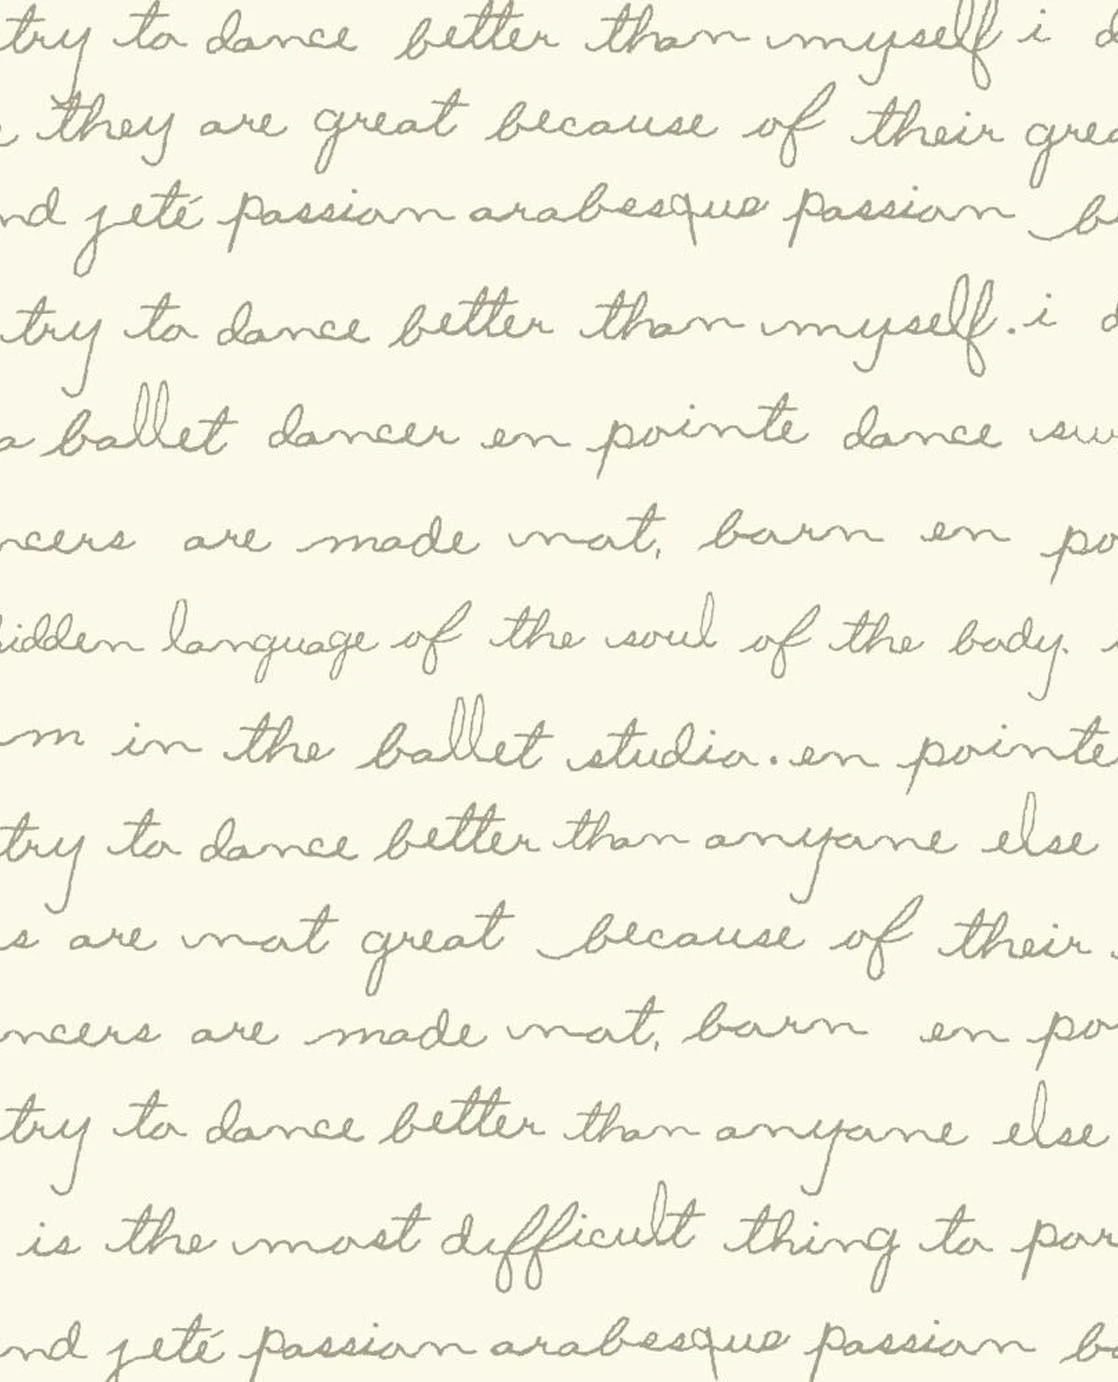 try to dance better than myself i d
they are great because of their grea
nd jeté passion arabesque passion b
try to dance better than myself. i d
a ballet dancer en pointe dance sw
ncers are made not, born en po
hidden language of the soul of the body.
m in the ballet studio. en pointe
try to dance better than anyone else
s are not great because of their
ncers are made not, born en po
try to dance better than anyone else
is the most difficult thing to por
nd jeté passion arabesque passion ba